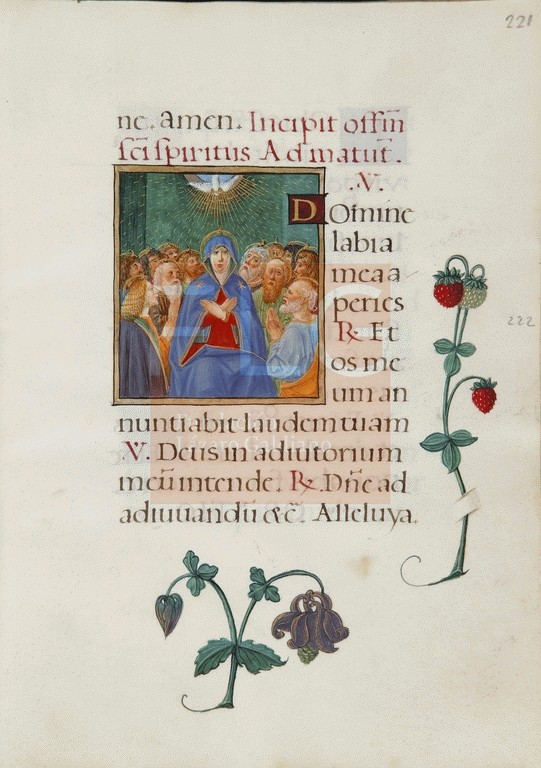 221
ne. Amen. Incipit offīn
sc̄i spiritus Ad matut̄.
.V.
Domine
labia
mea a
peries
222
R. Et
os me
um an
nuntiabit laudem tuam
V. Deus in adiutorium
meū intende. R. Dn̄e ad
adiuuandū &c̄. Alleluya.
Lázaro Galdiano